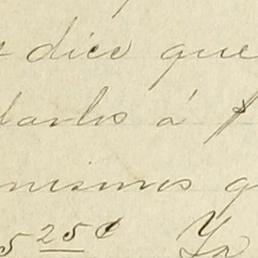 dice que
darlos á
mismos q
5 25¢ Ya